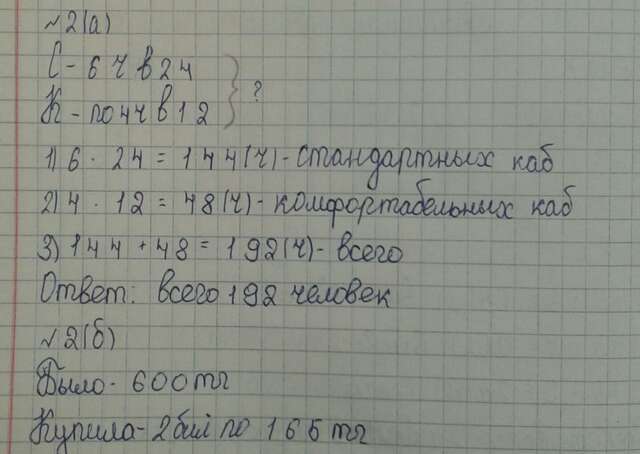 №2(а)
С - 6 ч в 24
К - по 4 ч в 12 } ?
1) 6 · 24 = 144 (ч) - стандартных каб
2) 4 · 12 = 48 (ч) - комфортабельных каб
3) 144 + 48 = 192 (ч) - всего
Ответ: всего 192 человек
№2(б)
Было - 600 тг
Купила - 2 бил по 165 тг